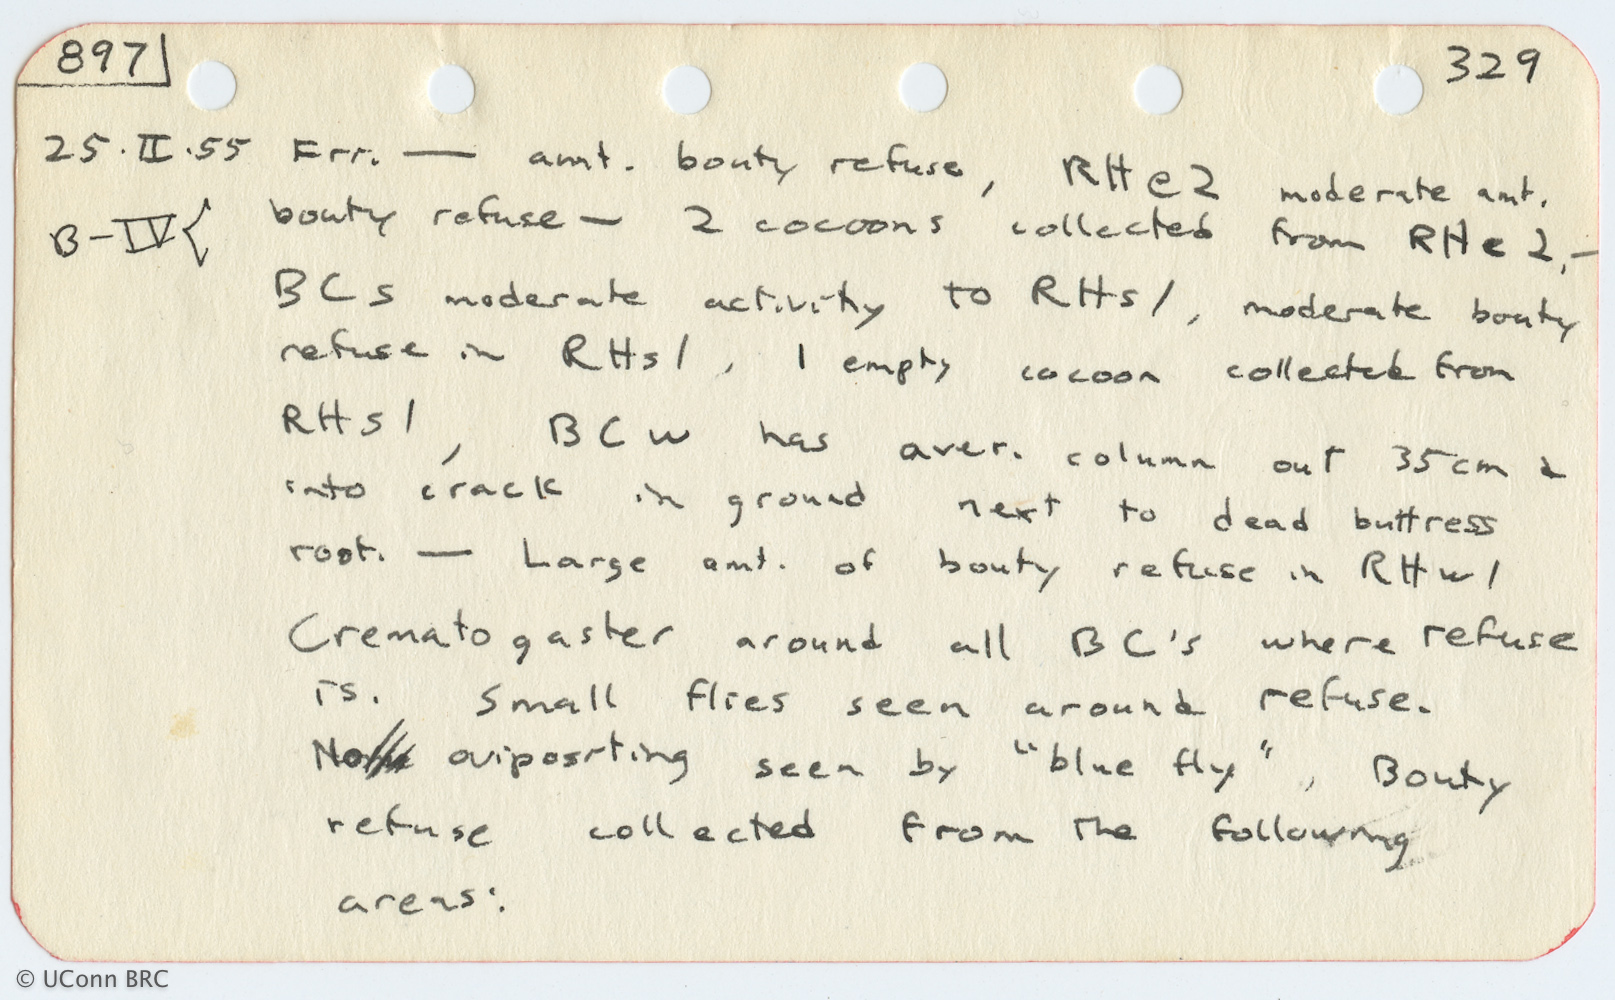 897
329
25.II.55 Err. — amt. bouty refuse, RHe2 moderate amt.
B-IV{ bouty refuse — 2 cocoons collected from RHe2,—
BCs moderate activity to RHs1, moderate bouty
refuse in RHs1, 1 empty cocoon collected from
RHs1, BCw has aver. column out 35cm &
into crack in ground next to dead buttress
root. — Large amt. of bouty refuse in RHw1
Crematogaster around all BC's where refuse
is. Small flies seen around refuse.
No ovipositing seen by "blue fly", Bouty
refuse collected from the following
areas:
© UConn BRC